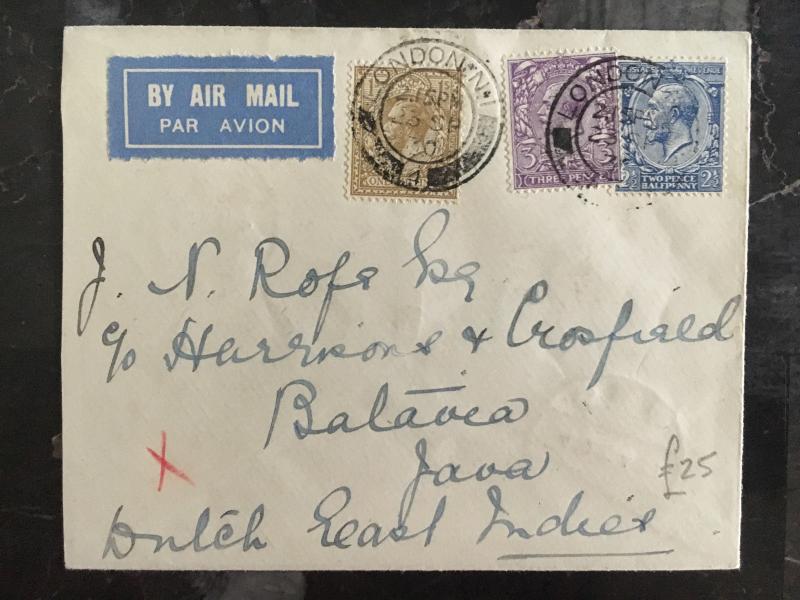 BY AIR MAIL
PAR AVION
LONDON.N.1
LONDON
THREE PENCE
TWO PENCE
HALFPENNY
2½ 2½
J. N. Rofe Esq
c/o Harrisons & Crosfield
Batavia
Java
£25
Dutch East Indies